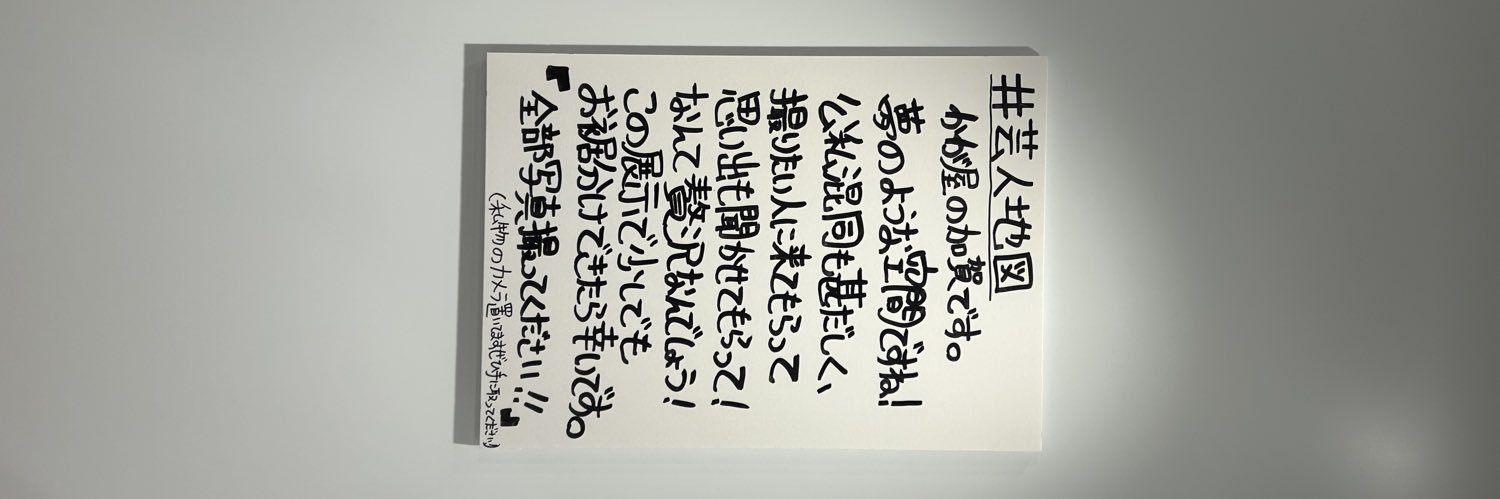 #芸人地図
かが屋の加賀です。
夢のような空間ですね!
公私混同も甚だしく、
撮りたい人に来てもらって
思い出も聞かせてもらって!
なんて贅沢なんでしょう!
この展示で少しでも
お裾分けできたら幸いです。
『全部写真撮ってください!!』
(私物のカメラ置いてますぜひ手に取ってください)